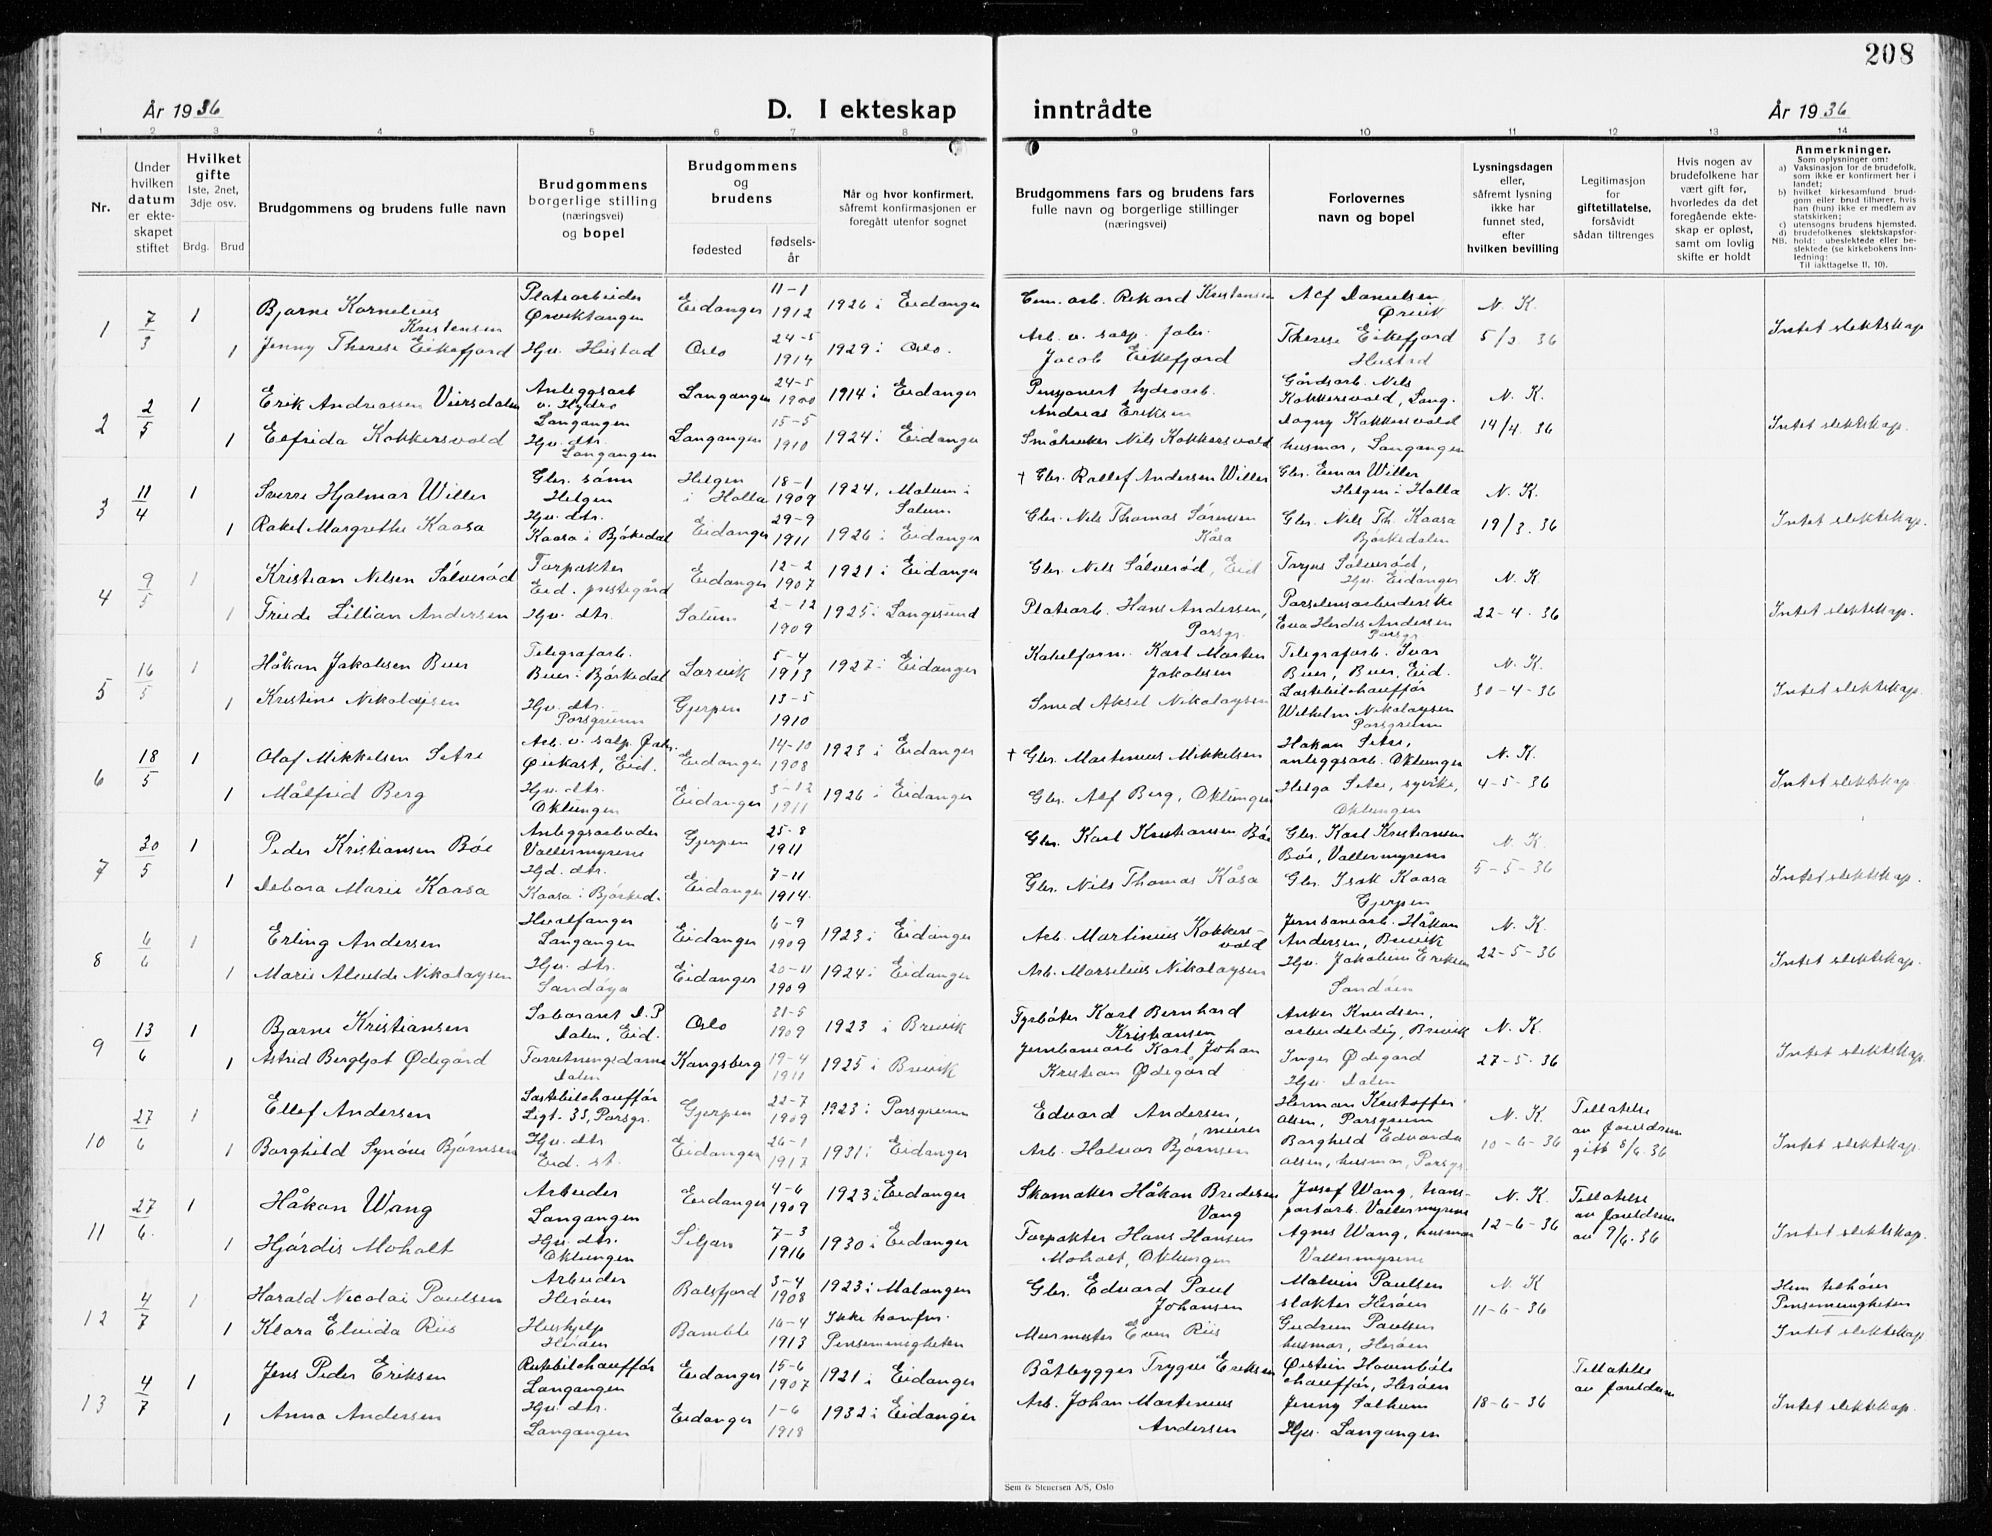 208
År 1936
D. I ekteskap inntrådte
År 1936
1 2 3 4 5 6 7 8 9 10 11 12 13 14
Nr.
Under hvilken datum er ekteskapet stiftet
Hvilket gifte
1ste, 2net, 3dje osv.
Brdg. Brud
Brudgommens og brudens fulle navn
Brudgommens borgerlige stilling (næringsvei) og bopel
Brudgommens og brudens
fødested
fødselsår
Når og hvor konfirmert.
såfremt konfirmasjonen er foregått utenfor sognet
Brudgommens fars og brudens fars
fulle navn og borgerlige stillinger
(næringsvei)
Forlovernes navn og bopel
Lysningsdagen eller, såfremt lysning ikke har funnet sted, efter hvilken bevilling
Legitimasjon for giftetillatelse, forsåvidt sådan tiltrenges
Hvis nogen av brudefolkene har vært gift før, hvorledes da det foregående ekteskap er opløst, samt om lovlig skifte er holdt
Anmerkninger.
Som oplysninger om:
a) Vaksinasjon for de brudefolk, som ikke er konfirmert her i landet;
b) hvilket kirkesamfund brudgom eller brud tilhører, hvis han (hun) ikke er medlem av statskirken;
c) utensogns brudens hjemsted.
d) brudefolkenes slektskapsforhold: ubeslektede eller beslektede (se kirkebokens innledning:
NB.
Til iakttagelse II, 10).
1 7/3 1 Bjarne Kornelius Kristensen Platearbeider Ørviktangen Eidanger 11-1 1912 1926 i Eidanger Rekord Kristensen Alf Danielsen Ørvik N. K.
1 Jenny Therese Eikefjord Hjv. Heistad Oslo 24-5 1914 1929 i Oslo. Arb. v. salp. fabr. Jacob Eikefjord Therese Eikefjord 5/2 36 Intet slektskap
2 2/5 1 Erik Andreassen Viersdalen Anleggsarb. v. Hydro Langangen Langangen 24-5 1900 1914 i Eidanger Pensjonert hydroarb. Andreas Eriksen Gårdsarb. Nils Kokkersvold, Lang. N. K.
1 Elfrida Kokkersvold Hjv. dtr. Langangen Langangen 15-5 1910 1924 i Eidanger Småbruker Nils Kokkersvold Dagny Kokkersvold husmor, Langangen 14/4. 36 Intet slektskap.
3 11/4 1 Sverre Hjalmar Willer Gbr. sønn Helgen Helgen i Holla 18-1 1909 1924, Melum i Solum. † Gbr. Rollef Andersen Willer Gbr. Einar Willer Helgen i Holla N. K.
1 Rakel Margrethe Kaasa Hjv. dtr. Kaasa i Bjørkedal Eidanger 29-9 1911 1926 i Eidanger Gbr. Nils Thomas Sørensen Kåsa Gbr. Nils Th. Kaasa Bjørkedalen 19/3. 36 Intet slektskap.
4 9/5 1 Kristian Nilsen Sølverød Forpakter Eid. prestegård Eidanger 12-2 1907 1921 i Eidanger Gbr. Nils Sølverød, Eid Torjus Sølverød, Hjv. Eidanger N. K.
1 Frida Lillian Andersen Hjv. dtr. Solum 2-12 1909 1925 i Langesund Platearb. Hans Andersen, Porsgr. Porselensarbeiderske Eva Herdis Andersen Porsgr. 22-4-36 Intet slektskap.
5 16/5 1 Håkon Jakobsen Buer Telegrafarb. Buer i Bjørkedal Larvik 5-4 1913 1927 i Eidanger Kabelform. Karl Morten Jakobsen Telegrafarb. Ivar Buer, Buer, Eid. N. K.
1 Kristine Nikolaysen Hjv. dtr. Porsgrunn Gjerpen 13-5 1910 Smed Aksel Nikolaysen Lastebilchauffør Wilhelm Nikolaysen Porsgrunn 30-4-36 Intet slektskap
6 18/5 1 Olaf Mikkelsen Setre Arb. v. salp. fabr. Øiekast, Eid. Eidanger 14-10 1908 1923 i Eidanger † Gbr. Martinius Mikkelsen Håkon Setre, anleggsarb. Oklungen N. K.
1 Målfrid Berg Hjv. dtr. Oklungen Eidanger 3-12 1911 1926 i Eidanger Gbr. Alf Berg, Oklungen Helga Setre, syerske, Oklungen 4-5-36 Intet slektskap
7 30/5 1 Peder Kristiansen Bøe Anleggsarbeider Vallermyrene Gjerpen 25-8 1911 Gbr. Karl Kristiansen Bøe Gbr. Karl Kristiansen Bøe, Vallermyrene N. K.
1 Debora Marie Kaasa Hjd. dtr. Kaasa i Bjørked. Eidanger 7-11 1914. Gbr. Nils Thomas Kåsa Gbr. Isak Kaasa Gjerpen 5-5-36 Intet slektskap.
8 6/6 1 Erling Andersen Hvalfanger Langangen Eidanger 6-9 1909 1923 i Eidanger Arb. Martinius Kokkersvold Jernbanearb. Håkon Andersen, Brevik N. K.
1 Marie Alvilde Nikolaysen Hjv. dtr. Sandøya Eidanger 20-11 1909 1924 i Eidanger Arb. Marselius Nikolaysen Hjv. Jakobine Eriksen Sandøen 22-5-36 Intet slektskap.
9 13/6 1 Bjarne Kristiansen Laborant D.P. Dalen, Eid. Oslo 21-5 1909 1923 i Brevik Fyrbøter Karl Bernhard Kristiansen Anker Knudsen, arbeidsledig, Brevik N. K.
1 Astrid Bergljot Ødegård Forretningsdame Dalen Kongsberg 19-4 1911 1925 i Brevik Jernbanearb Karl Johan Kristian Ødegård Inger Ødegård Hjv. Dalen 27-5-36 Intet slektskap.
10 27/6 1 Ellef Andersen Lastebilchauffør Ligt. 35, Porsgr. Gjerpen 22-7 1909 1923 i Porsgrunn Edvard Andersen, murer Herman Kristoffer Olsen, Porsgrunn N. K. Tillatelse av foreldrene gitt 8/6 36
1 Borghild Synøve Bjørnsen Hjv. dtr Eid. st. Eidanger 26-1 1917 1931 i Eidanger Arb. Halvor Bjørnsen Borghild Edvarda Olsen, husmor, Porsgr. 10-6-36 Intet slektskap.
11 27/6. 1 Håkon Wang Arbeider Langangen Eidanger 4-6 1909 1923 i Eidanger Skomaker Håkon Bredesen Vang Josef Wang, transportarb. Vallermyrene N. K. Tillatelse av foreldrene av 9/6. 36
1 Hjørdis Moholt Hjv. dtr. Oklungen Siljan 7-3 1916 1930 i Eidanger Forpakter Hans Hansen Moholt, Oklungen Agnes Wang, husmor Vallermyrene 12-6-36 Intet slektskap.
12 4/7 1 Harald Nicolai Paulsen Arbeider Herøen Balsfjord 3-4 1908 1923 i Malangen Gbr. Edvard Paul Johansen Malvin Paulsen slakter Herøen N. K Hun tilhører Pinsemenigheten
1 Klara Elvida Riis Hushjelp Herøen Bamble 16-4 1913 Ikke konfir. Pinsemenigheten Murmester Even Riis Gudrun Paulsen husmor, Herøen 11-6-36 Intet slektskap
13 4/7 1 Jens Peder Eriksen Rutebilchauffør Langangen Eidanger 15-6 1907 1921 i Eidanger Båtbygger Trygve Eriksen Øistein chauffør, Herøen Tillatelse av foreldrene
1 Anna Andersen Hjv. dtr. Langangen Eidanger 1-6 1918 1932 i Eidanger Arb. Johan Martinius Andersen Jenny Solheim Hjv. Langangen 18-6-36 Intet slektskap.
Sem & Stenersen A/S, Oslo